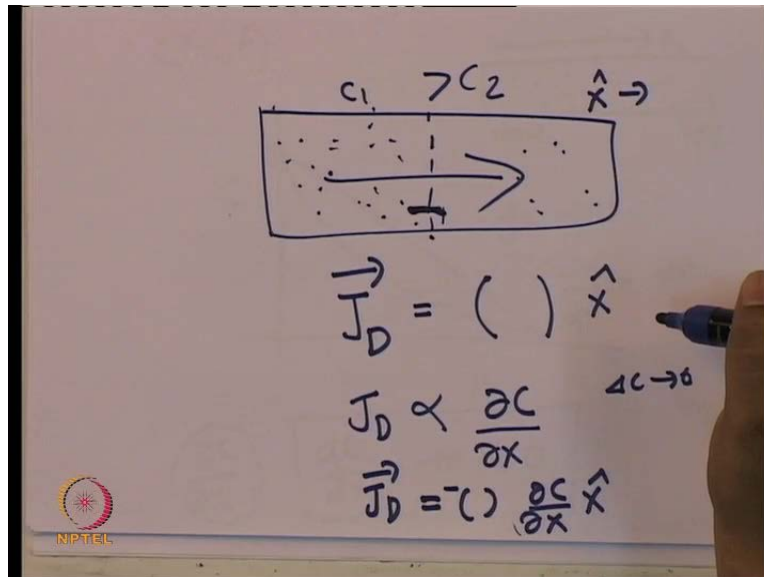 C₁ > C₂ x̂ →
J⃗_D = ( ) x̂
J_D ∝ ∂C/∂x ΔC→0
J⃗_D = -( ) ∂C/∂x x̂
NPTEL